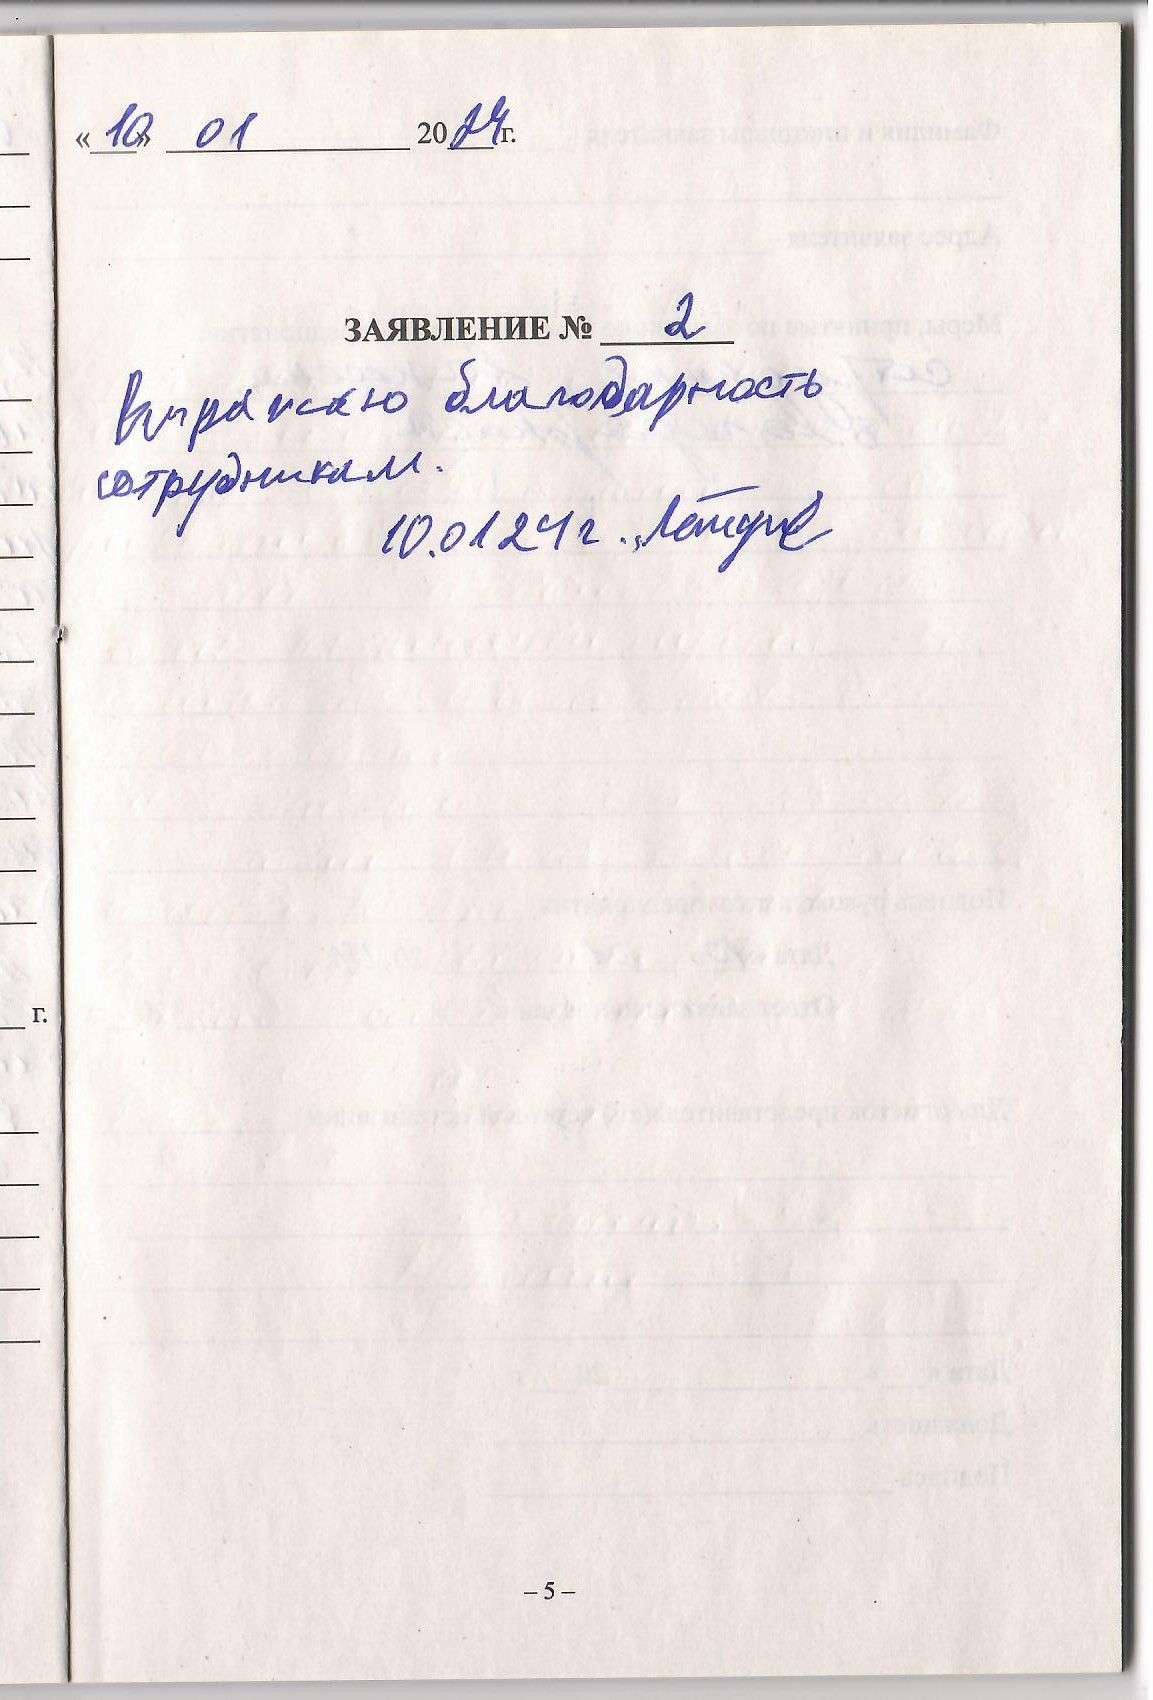 «10» 01 2024 г.
ЗАЯВЛЕНИЕ № 2
Выражаю благодарность
сотрудникам.
10.01 24 г.
г.
– 5 –